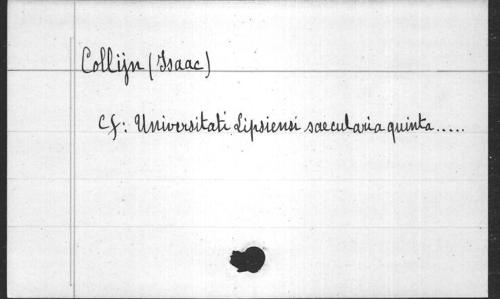 Collijn (Isaac)
Cf: Universitati Lipsiensi saecularia quinta.....